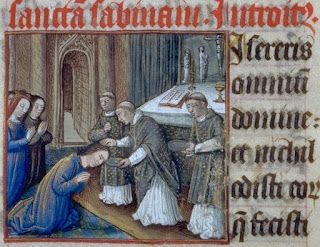 sanctā sabinam. Introitꝰ.
Isereris
omniū
domine:
et nichil
odisti eor
q̄ fecisti